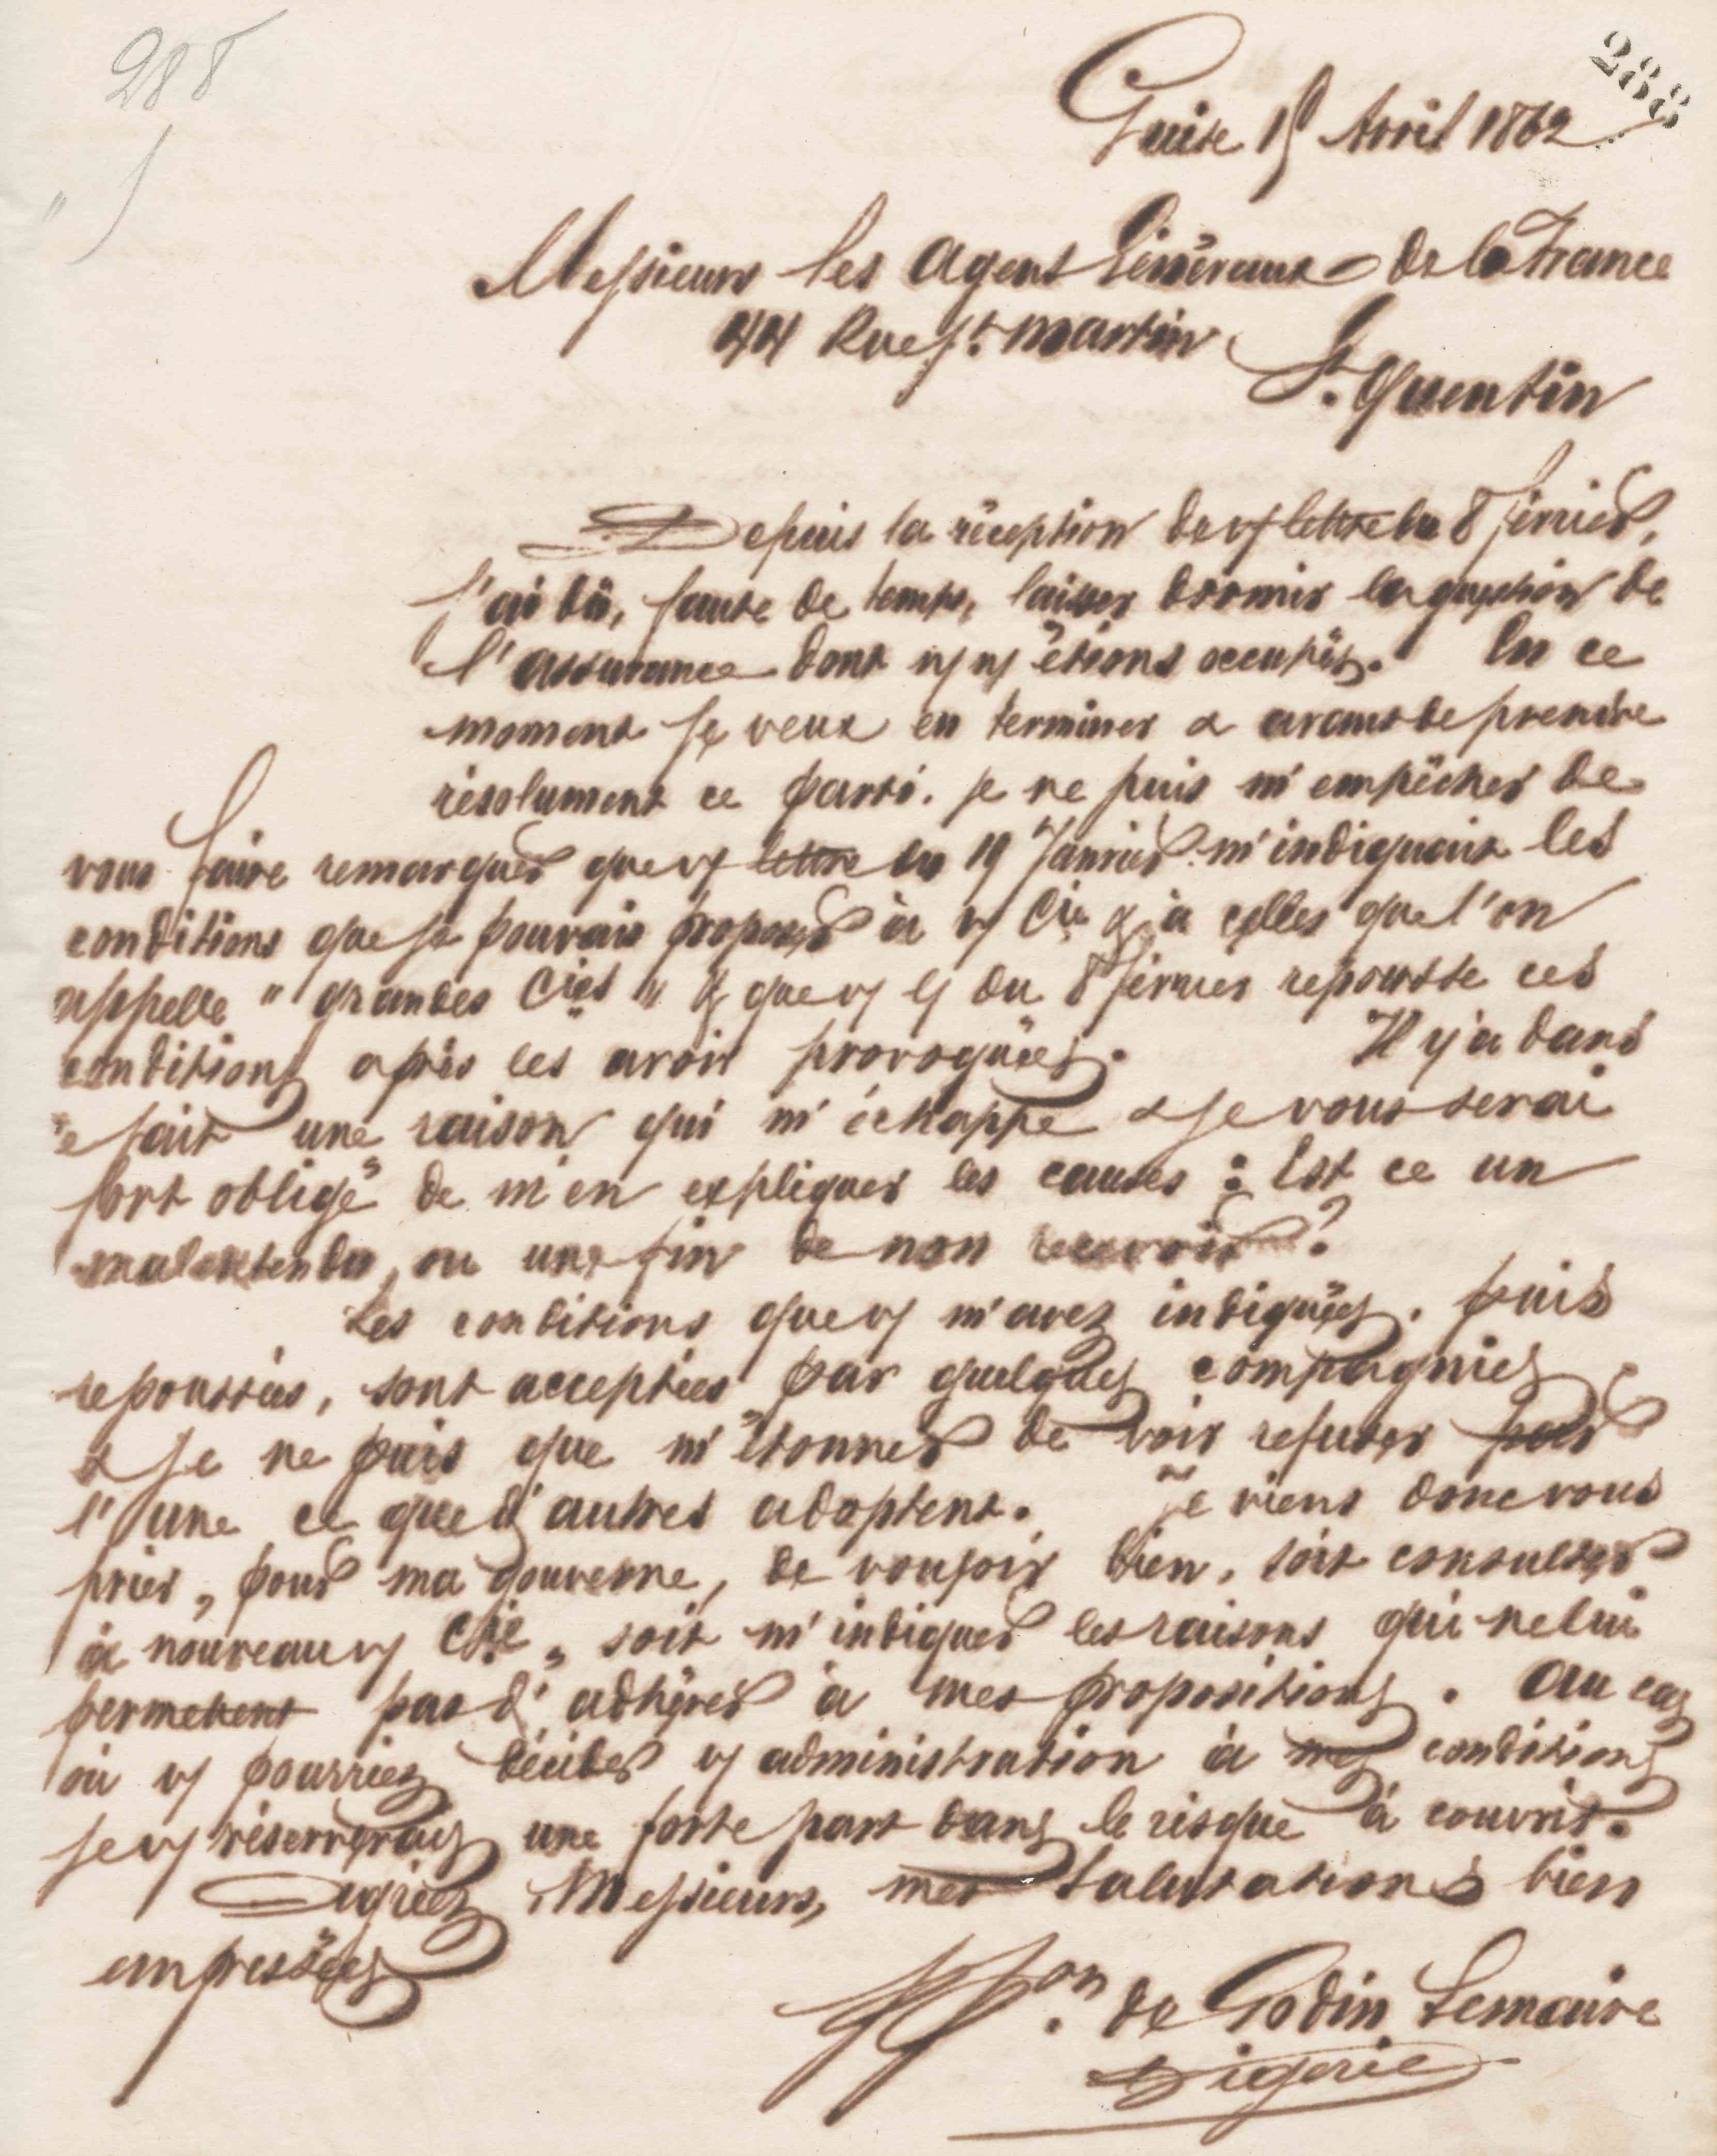 288
288
"
Guise 15 Avril 1862
Messieurs les Agent Généraux de la France
44 Rue St. Martin
St. Quentin
Depuis la réception de vs lettre du 8 février,
j'ai dû, faute de temps, laisser dormir la question de
l'assurance dont ns ns étions occupés. En ce
moment je veux en terminer & avant de prendre
résolument ce parti. je ne puis m'empêcher de
vous faire remarquer que vs lettre du 19 Janvier m'indiquait les
conditions que je pouvais proposer à vs Cie & à celles que l'on
appelle " grandes Cies " & que vs L du 8 février repousse ces
conditions après les avoir provoquées. Il y a dans
ce fait une raison qui m'échappe & je vous serai
fort obligé de m'en expliquer les causes : Est ce un
malentendu, ou une fin de non recevoir ?
Les conditions que vs m'avez indiquées. puis
repoussées, sont acceptées par quelques compagnies
& je ne puis que m'étonner de voir refuser par
l'une ce que d'autres adoptent. Je viens donc vous
prier, pour ma gouverne, de vouloir bien, soit consulter
à nouveau vs Cie, soit m'indiquer les raisons qui ne lui
permettent pas d'adhérer à mes propositions. Au cas
où vs pourriez décider vs administration à mes conditions
je vs réserverais une forte part dans le risque à couvrir.
Agréez, Messieurs, mes salutations bien
empressées
de Godin Lemaire